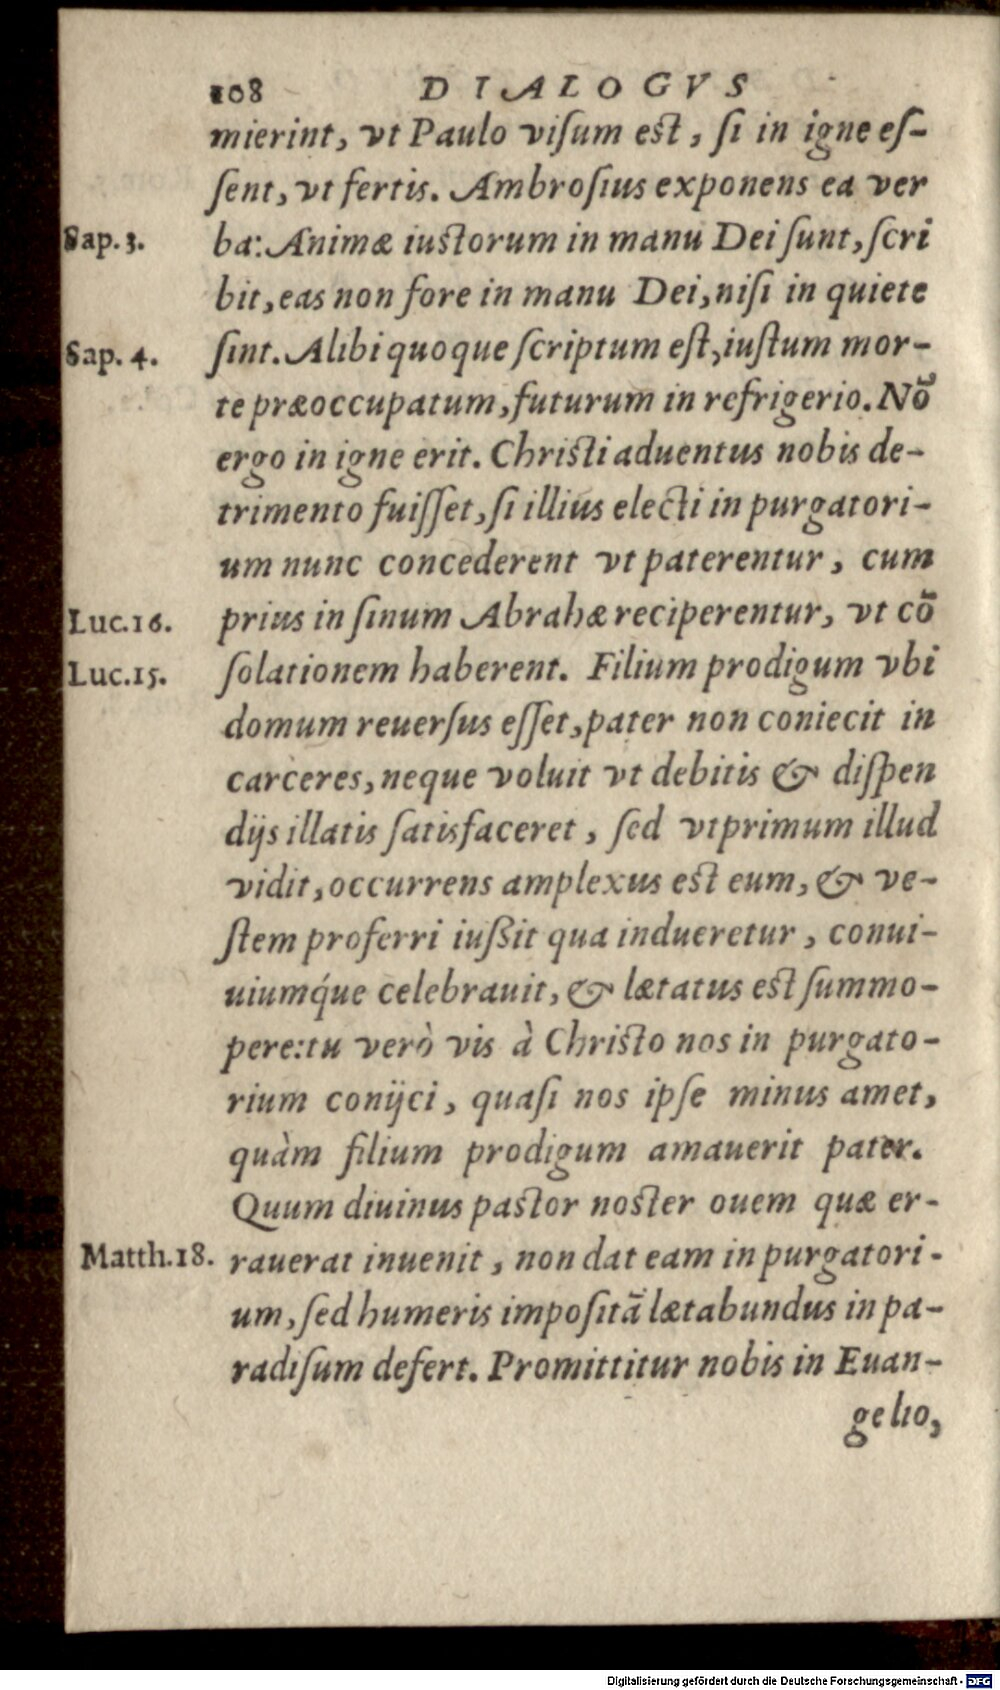 108 DIALOGVS
mierint, vt Paulo viſum eſt, ſi in igne eſ-
ſent, vt fertis. Ambroſius exponens ea ver
Sap. 3. ba: Animæ iuſtorum in manu Dei ſunt, ſcri
bit, eas non fore in manu Dei, niſi in quiete
Sap. 4. ſint. Alibi quoque ſcriptum eſt, iuſtum mor-
te præoccupatum, futurum in refrigerio. Nõ
ergo in igne erit. Chriſti aduentus nobis de-
trimento fuiſſet, ſi illius electi in purgatori-
um nunc concederent vt paterentur, cum
Luc. 16. prius in ſinum Abrahæ reciperentur, vt cõ
Luc. 15. ſolationem haberent. Filium prodigum vbi
domum reuerſus eſſet, pater non coniecit in
carceres, neque voluit vt debitis & diſpen
dijs illatis ſatisfaceret, ſed vtprimum illud
vidit, occurrens amplexus eſt eum, & ve-
ſtem proferri iußit qua indueretur, conui-
uiumq́ue celebrauit, & lætatus eſt ſummo-
pere: tu verò vis à Chriſto nos in purgato-
rium conijci, quaſi nos ipſe minus amet,
quàm filium prodigum amauerit pater.
Quum diuinus paſtor noſter ouem quæ er-
Matth. 18. rauerat inuenit, non dat eam in purgatori-
um, ſed humeris impoſitã lætabundus in pa-
radiſum defert. Promittitur nobis in Euan-
gelio,
Digitalisierung gefördert durch die Deutsche Forschungsgemeinschaft - DFG